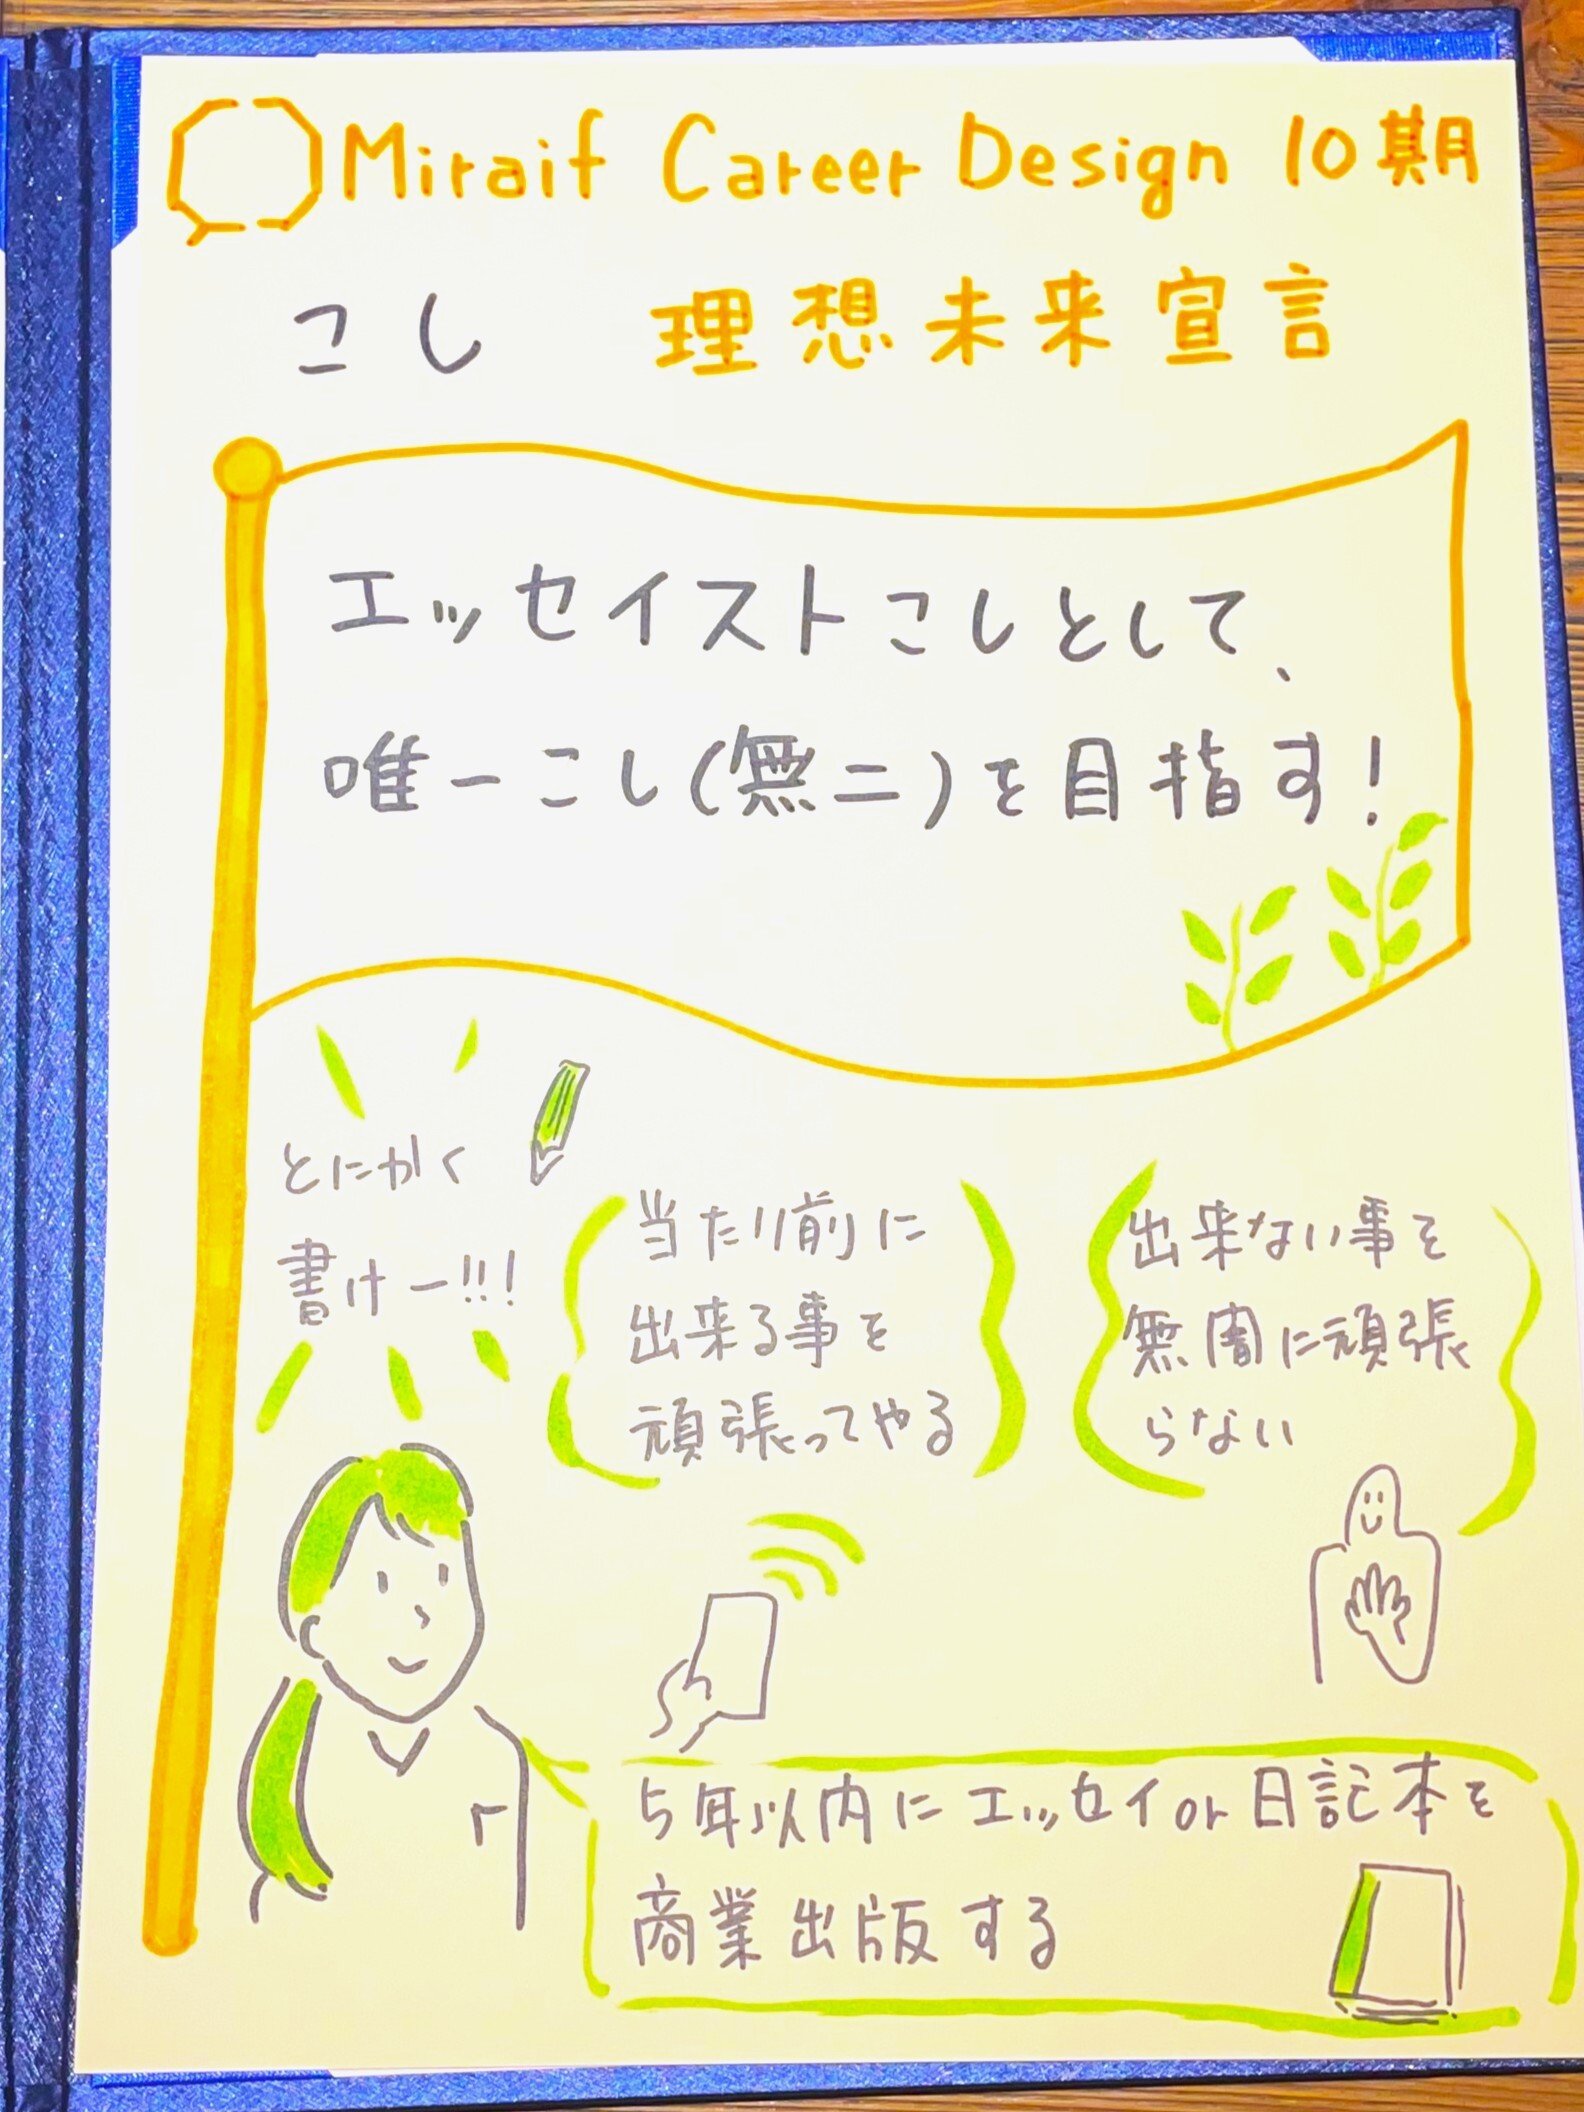 Miraif Career Design 10期
こし 理想未来宣言
エッセイストこしとして、
唯一こし(無二)を目指す!
とにかく
書けー!!!
当たり前に
出来る事を
頑張ってやる
出来ない事を
無闇に頑張
らない
5年以内にエッセイor日記本を
商業出版する